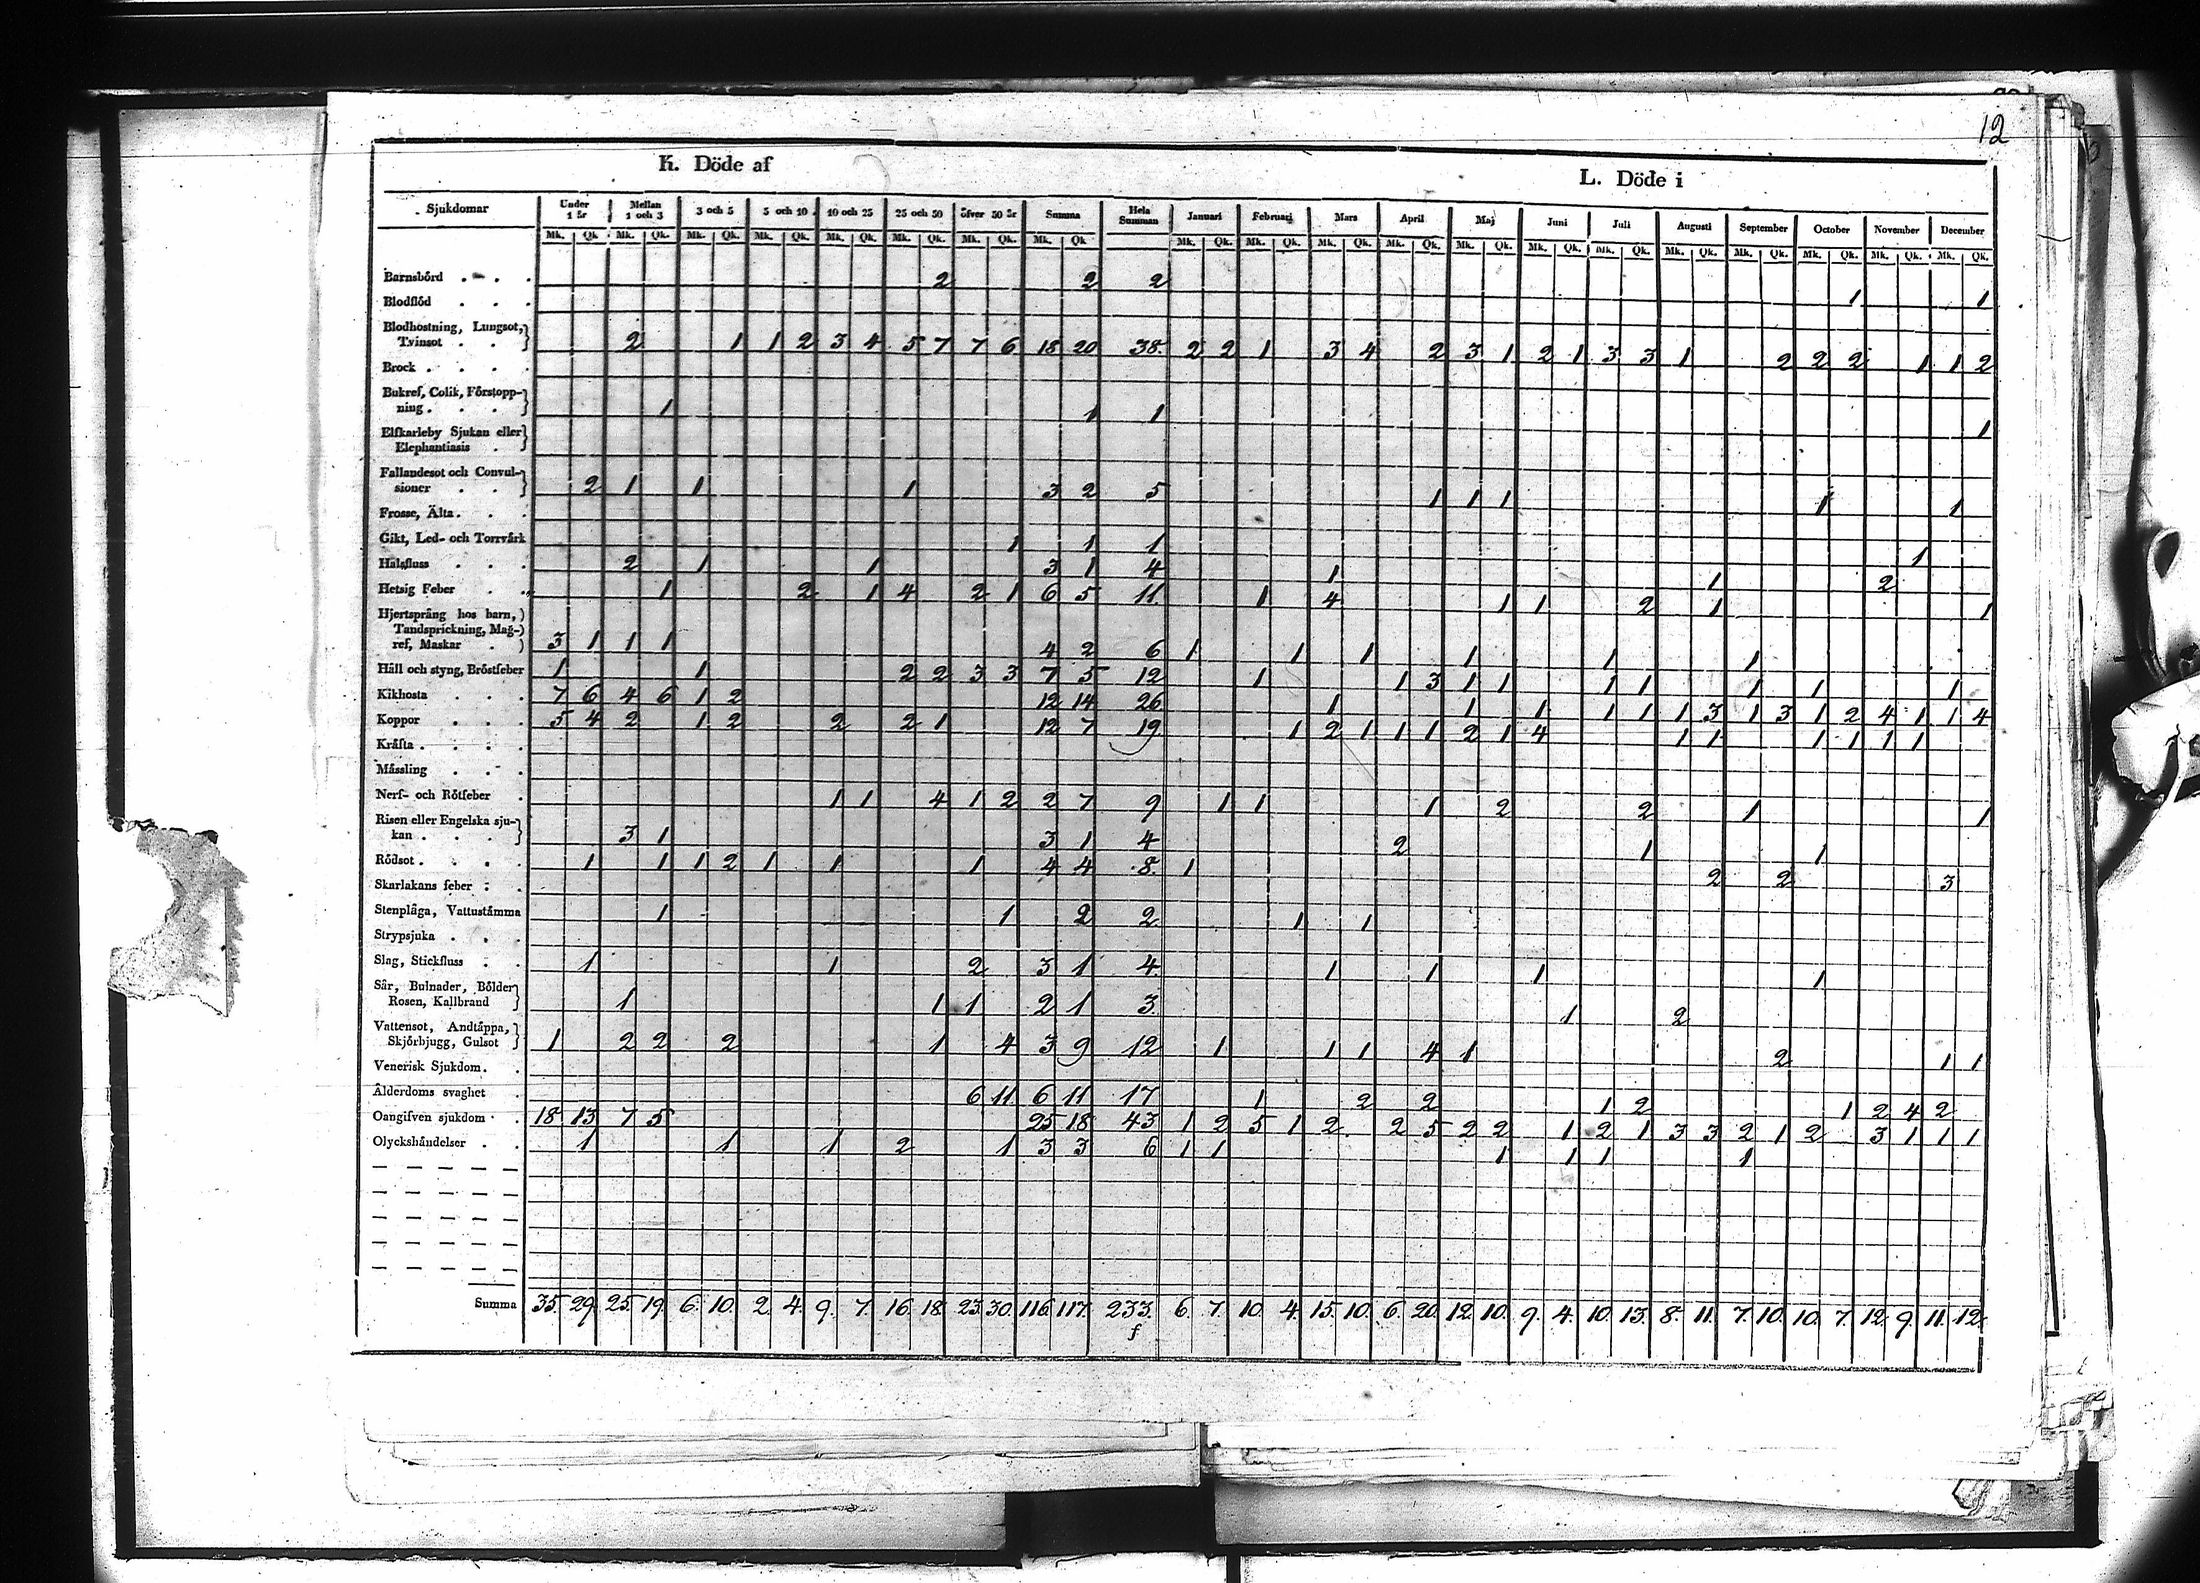 12
K. Döde af
L. Döde i
Sjukdomar Under 1 år Mellan 1 och 3 3 och 5 5 och 10 10 och 25 25 och 50 öfver 50 år Summa Hela Summan Januari Februari Mars April Maj Juni Juli Augusti September October November December
Mk. Qk. Mk. Qk. Mk. Qk. Mk. Qk. Mk. Qk. Mk. Qk. Mk. Qk. Mk. Qk Mk. Qk. Mk. Qk. Mk. Qk. Mk. Qk. Mk. Qk. Mk. Qk. Mk. Qk. Mk. Qk. Mk. Qk. Mk. Qk. Mk. Qk. Mk. Qk.
Barnsbörd . . . 2 2 2 1 1
Blodflöd . . .
Blodhostning, Lungsot,
Tvinsot . . 2 1 1 2 3 4 5 7 7 6 18 20 38. 2 2 1 3 4 2 3 1 2 1 3 3 1 2 2 2 1 1 2
Brock . . . .
Bukref, Colik, Förstopp-
ning . . . 1 1 1 1
Elfkarleby Sjukan eller
Elephantiasis .
Fallandesot och Convul-
sioner . . 2 1 1 1 3 2 5 1 1 1 1 1
Frosse, Älta . . .
Gikt, Led- och Torrvärk 1 1 1 1
Halsfluss . . . 2 1 1 3 1 4 1 1 2
Hetsig Feber . . 1 2 1 4 2 1 6 5 11. 1 4 1 1 2 1 1
Hjertsprång hos barn,
Tandsprickning, Mag-
ref, Maskar . 3 1 1 1 4 2 6 1 1 1 1 1 1
Håll och styng, Bröstfeber 1 1 2 2 3 3 7 5 12 1 1 3 1 1 1 1 1 1 1
Kikhosta . . . 7 6 4 6 1 2 12 14 26 1 1 1 1 1 1 3 1 3 1 2 4 1 1 4
Koppor . . . 5 4 2 1 2 2 2 1 12 7 19. 1 2 1 1 1 2 1 4 1 1 1 1 1 1
Kräfta . . . .
Mässling . . .
Nerf- och Rötfeber . 1 1 4 1 2 2 7 9 1 1 1 2 2 1 1
Risen eller Engelska sju-
kan . . . 3 1 3 1 4 2 1 1
Rödsot . . . . 1 1 1 2 1 1 1 4 4 8. 1 2 2 3
Skarlakans feber . .
Stenplåga, Vattustämma 1 1 2 2 1 1
Strypsjuka . . .
Slag, Stickfluss . . 1 1 2 3 1 4 1 1 1 1
Sår, Bulnader, Bölder
Rosen, Kallbrand 1 1 1 2 1 3. 1 2
Vattensot, Andtäppa,
Skjörbjugg, Gulsot 1 2 2 2 1 4 3 9 12 1 1 1 4 1 2 1 1
Venerisk Sjukdom . .
Ålderdoms svaghet . 6 11. 6 11 17 1 2 2 1 2 1 2 4 2
Oangifven sjukdom . . 18. 13 7 5 25 18 43 1 2 5 1 2 2 5 2 2 1 2 1 3 3 2 1 2 3 1 1 1
Olyckshändelser . . 1 1 1 2 1 3 3 6 1 1 1 1 1 1
Summa 35. 29. 25. 19. 6. 10. 2. 4. 9. 7. 16. 18. 23. 30. 116. 117. 233. 6. 7. 10. 4. 15. 10. 6. 20. 12. 10. 9. 4. 10. 13. 8. 11. 7. 10. 10. 7. 12. 9. 11. 12.